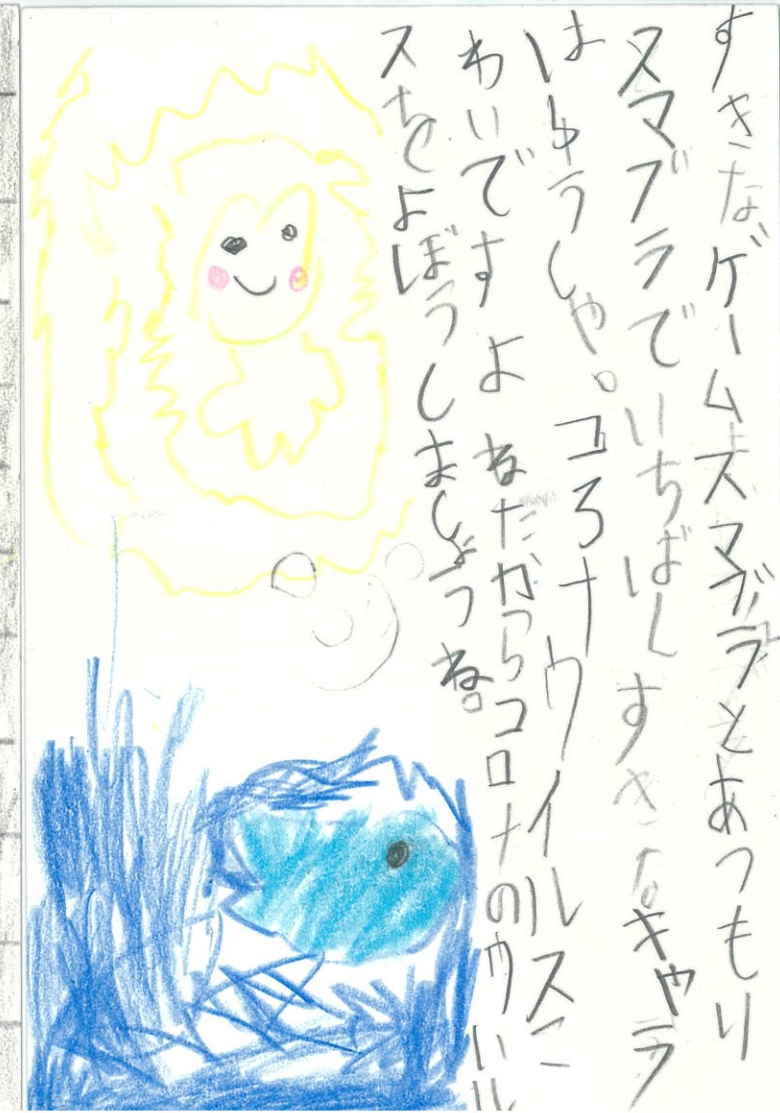 すきなゲームズマブラとあつもり
スマブラでいちばんすきなキャラ
はゆうしゃ。コろナウイルスこ
わいですよねだからコロナのウイル
スをよぼうしましょうね。